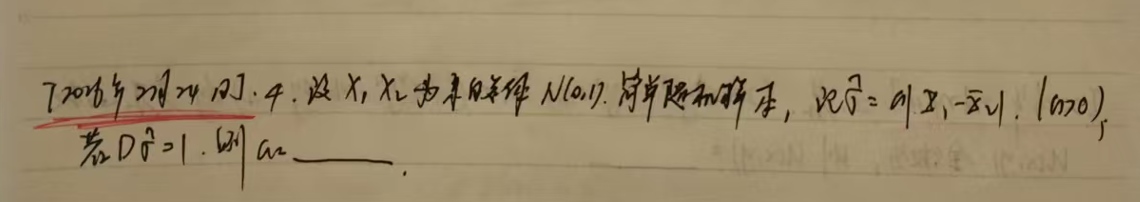 [2026年22月24日]. 4. 设 X₁ X₂ 为来自总体 N(0,1). 简单随机样本, 记 σ̂ = a|X₁-X₂|. (a>0),
若 Dσ̂=1. 则 a= ______.